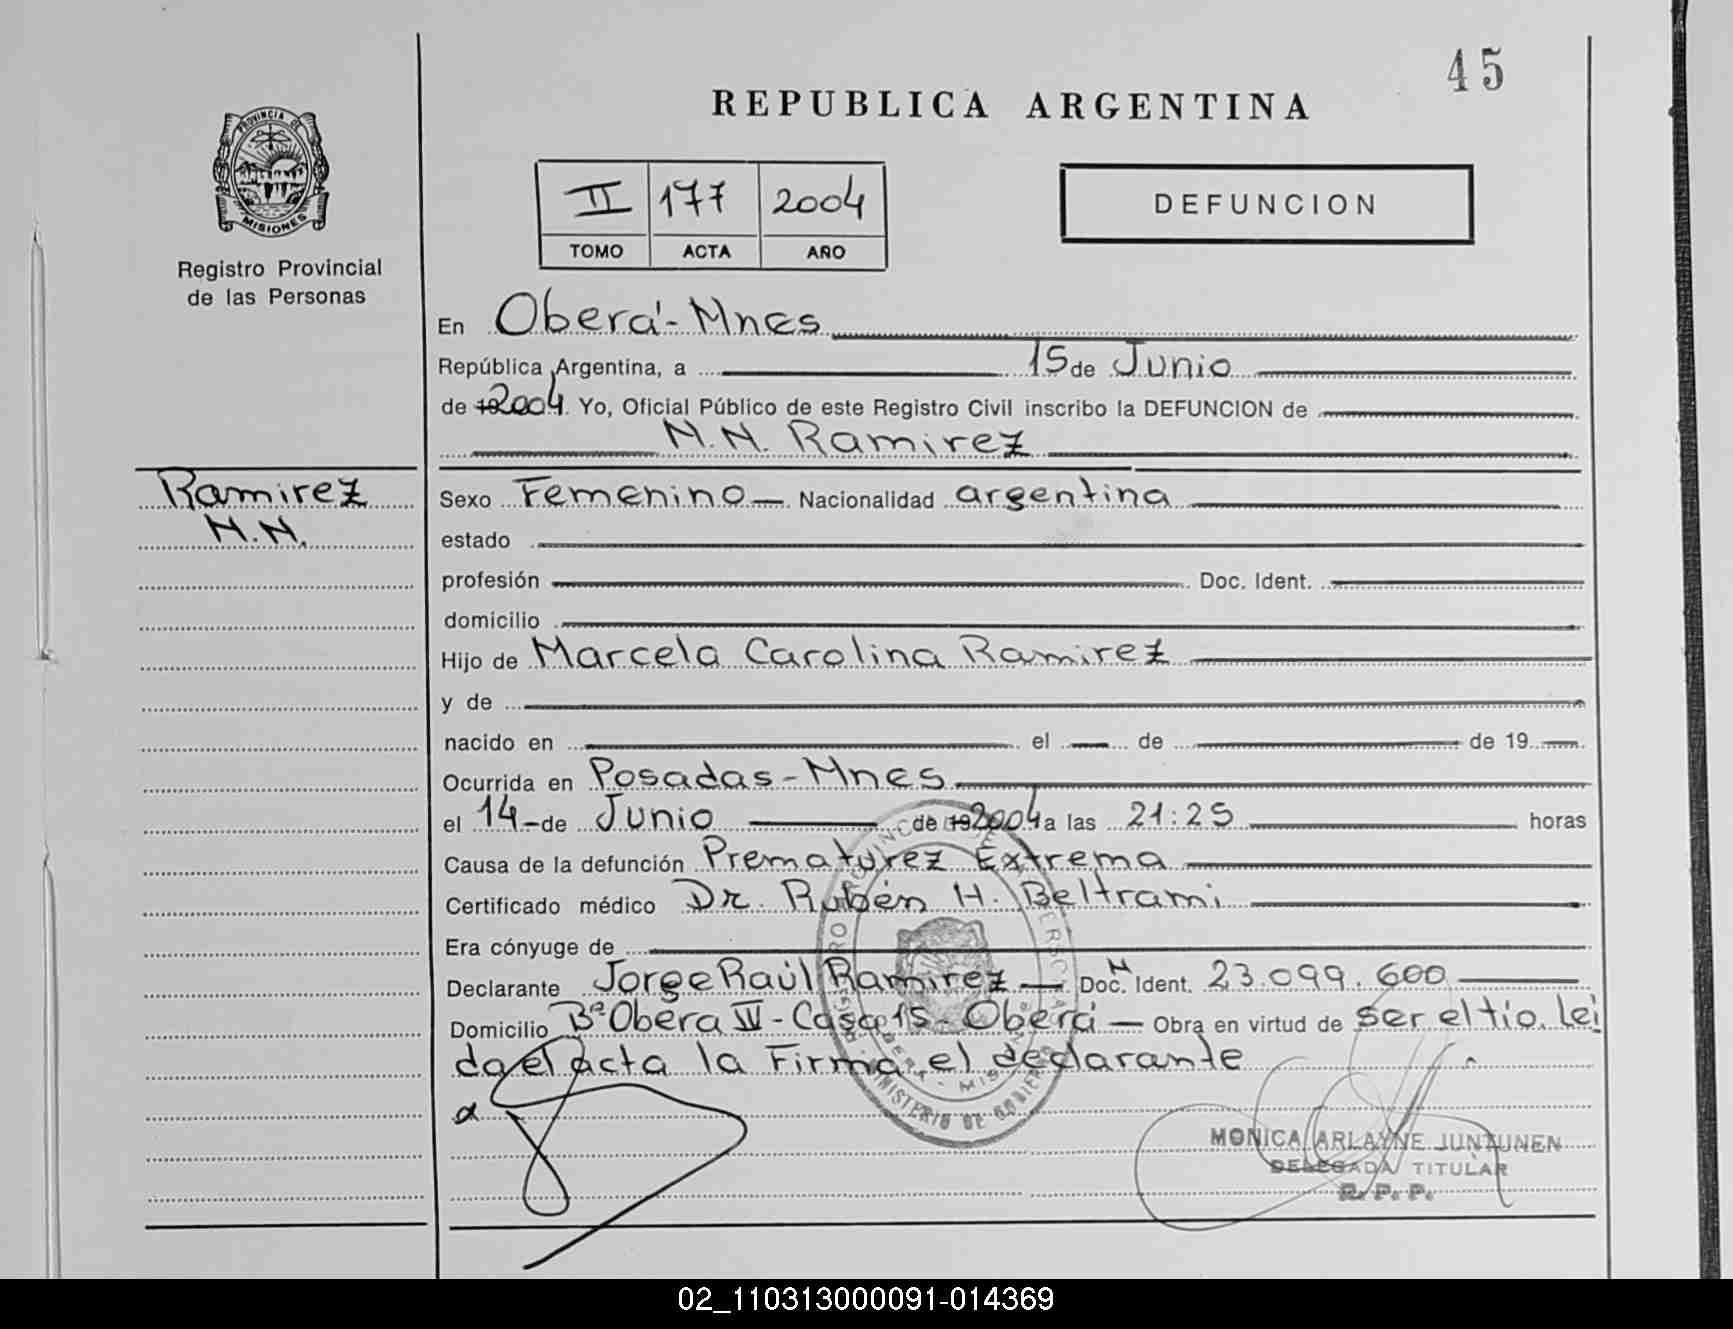 45
REPUBLICA ARGENTINA
PROVINCIA DE
MISIONES
Registro Provincial
de las Personas
II 177 2004
TOMO ACTA AÑO
DEFUNCION
En Oberá - Mnes
República Argentina, a 15 de Junio
de 19 2004. Yo, Oficial Público de este Registro Civil inscribo la DEFUNCION de
N.N. Ramirez
Ramirez
N.N.
Sexo Femenino Nacionalidad argentina
estado
profesión Doc. Ident.
domicilio
Hijo de Marcela Carolina Ramirez
y de
nacido en el de de 19
Ocurrida en Posadas - Mnes
el 14 de Junio de 19 2004 a las 21:25 horas
Causa de la defunción Prematurez Extrema
Certificado médico Dr. Rubén H. Beltrami
Era cónyuge de
Declarante Jorge Raúl Ramirez Doc. N Ident. 23.099.600
Domicilio Bº Oberá IV - Casa 15 - Oberá Obra en virtud de ser el tío. Lei
da el acta la Firma el declarante
MINISTERIO DE GOBIERNO
MONICA ARLAYNE JUNTUNEN
DELEGADA TITULAR
R. P. P.
02_110313000091-014369